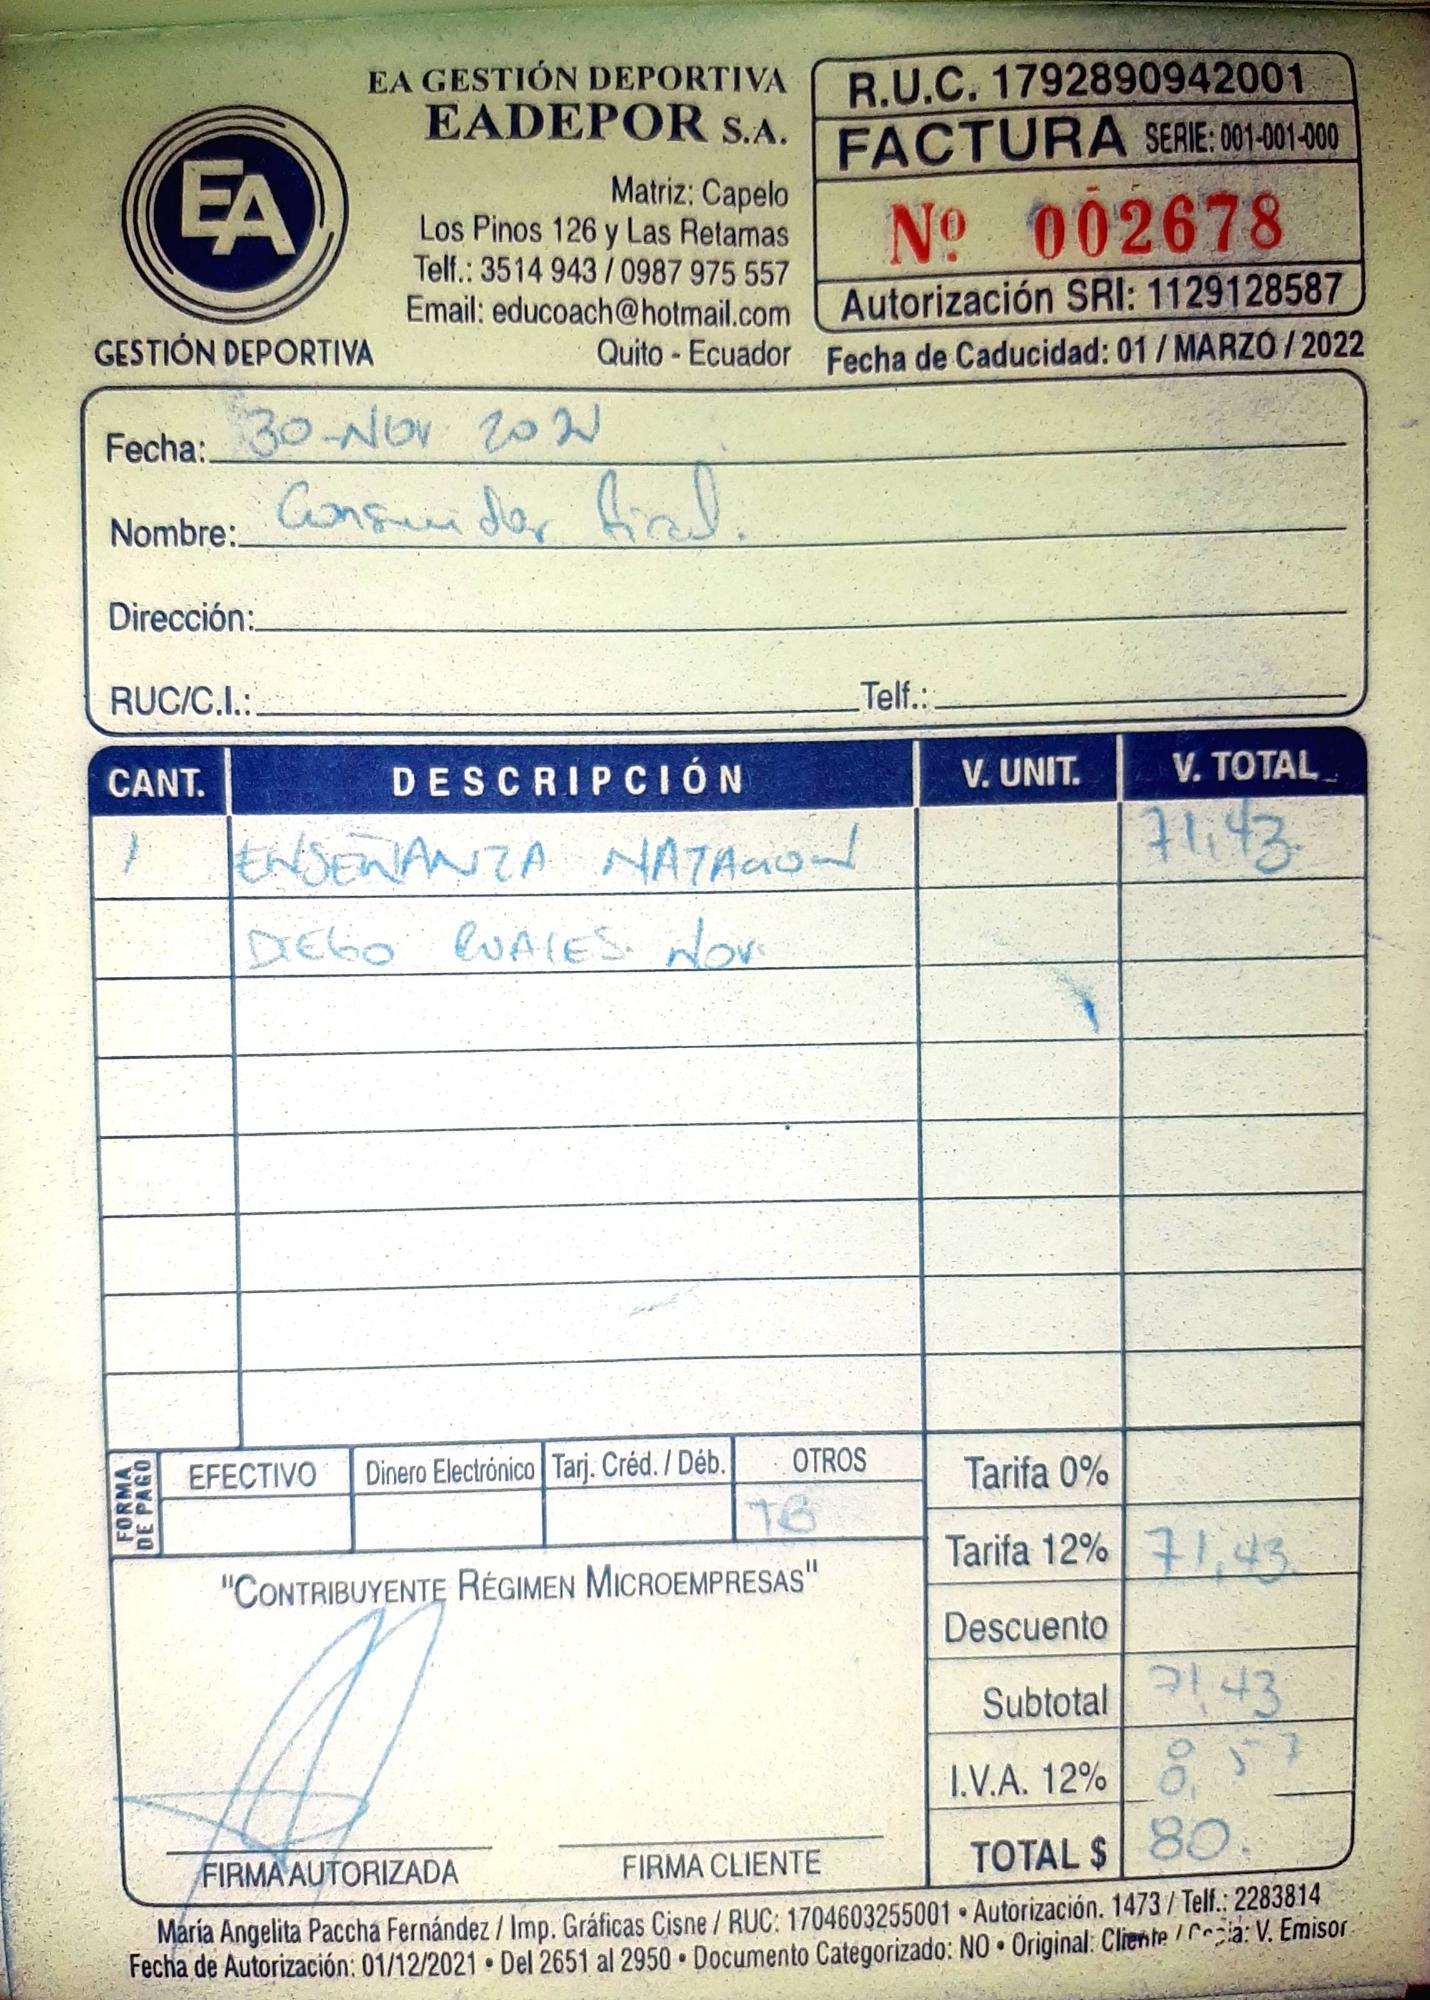 EA GESTIÓN DEPORTIVA
EADEPOR S.A.
EA
GESTIÓN DEPORTIVA
Matriz: Capelo
Los Pinos 126 y Las Retamas
Telf.: 3514 943 / 0987 975 557
Email: educoach@hotmail.com
Quito - Ecuador
R.U.C. 1792890942001
FACTURA SERIE: 001-001-000
Nº 002678
Autorización SRI: 1129128587
Fecha de Caducidad: 01 / MARZO / 2022
Fecha: 30-Nov 2021
Nombre: Consumidor final.
Dirección:
RUC/C.I.: Telf.:
CANT. DESCRIPCIÓN V. UNIT. V. TOTAL
1 ENSEÑANZA NATACION 71,43
DIEGO Nov.
FORMA DE PAGO EFECTIVO Dinero Electrónico Tarj. Créd. / Déb. OTROS
TB
Tarifa 0%
Tarifa 12% 71,43
Descuento
Subtotal 71,43
I.V.A. 12% 8,57
TOTAL $ 80.
"CONTRIBUYENTE RÉGIMEN MICROEMPRESAS"
FIRMA AUTORIZADA FIRMA CLIENTE
María Angelita Paccha Fernández / Imp. Gráficas Cisne / RUC: 1704603255001 • Autorización. 1473 / Telf.: 2283814
Fecha de Autorización: 01/12/2021 • Del 2651 al 2950 • Documento Categorizado: NO • Original: Cliente / Copia: V. Emisor